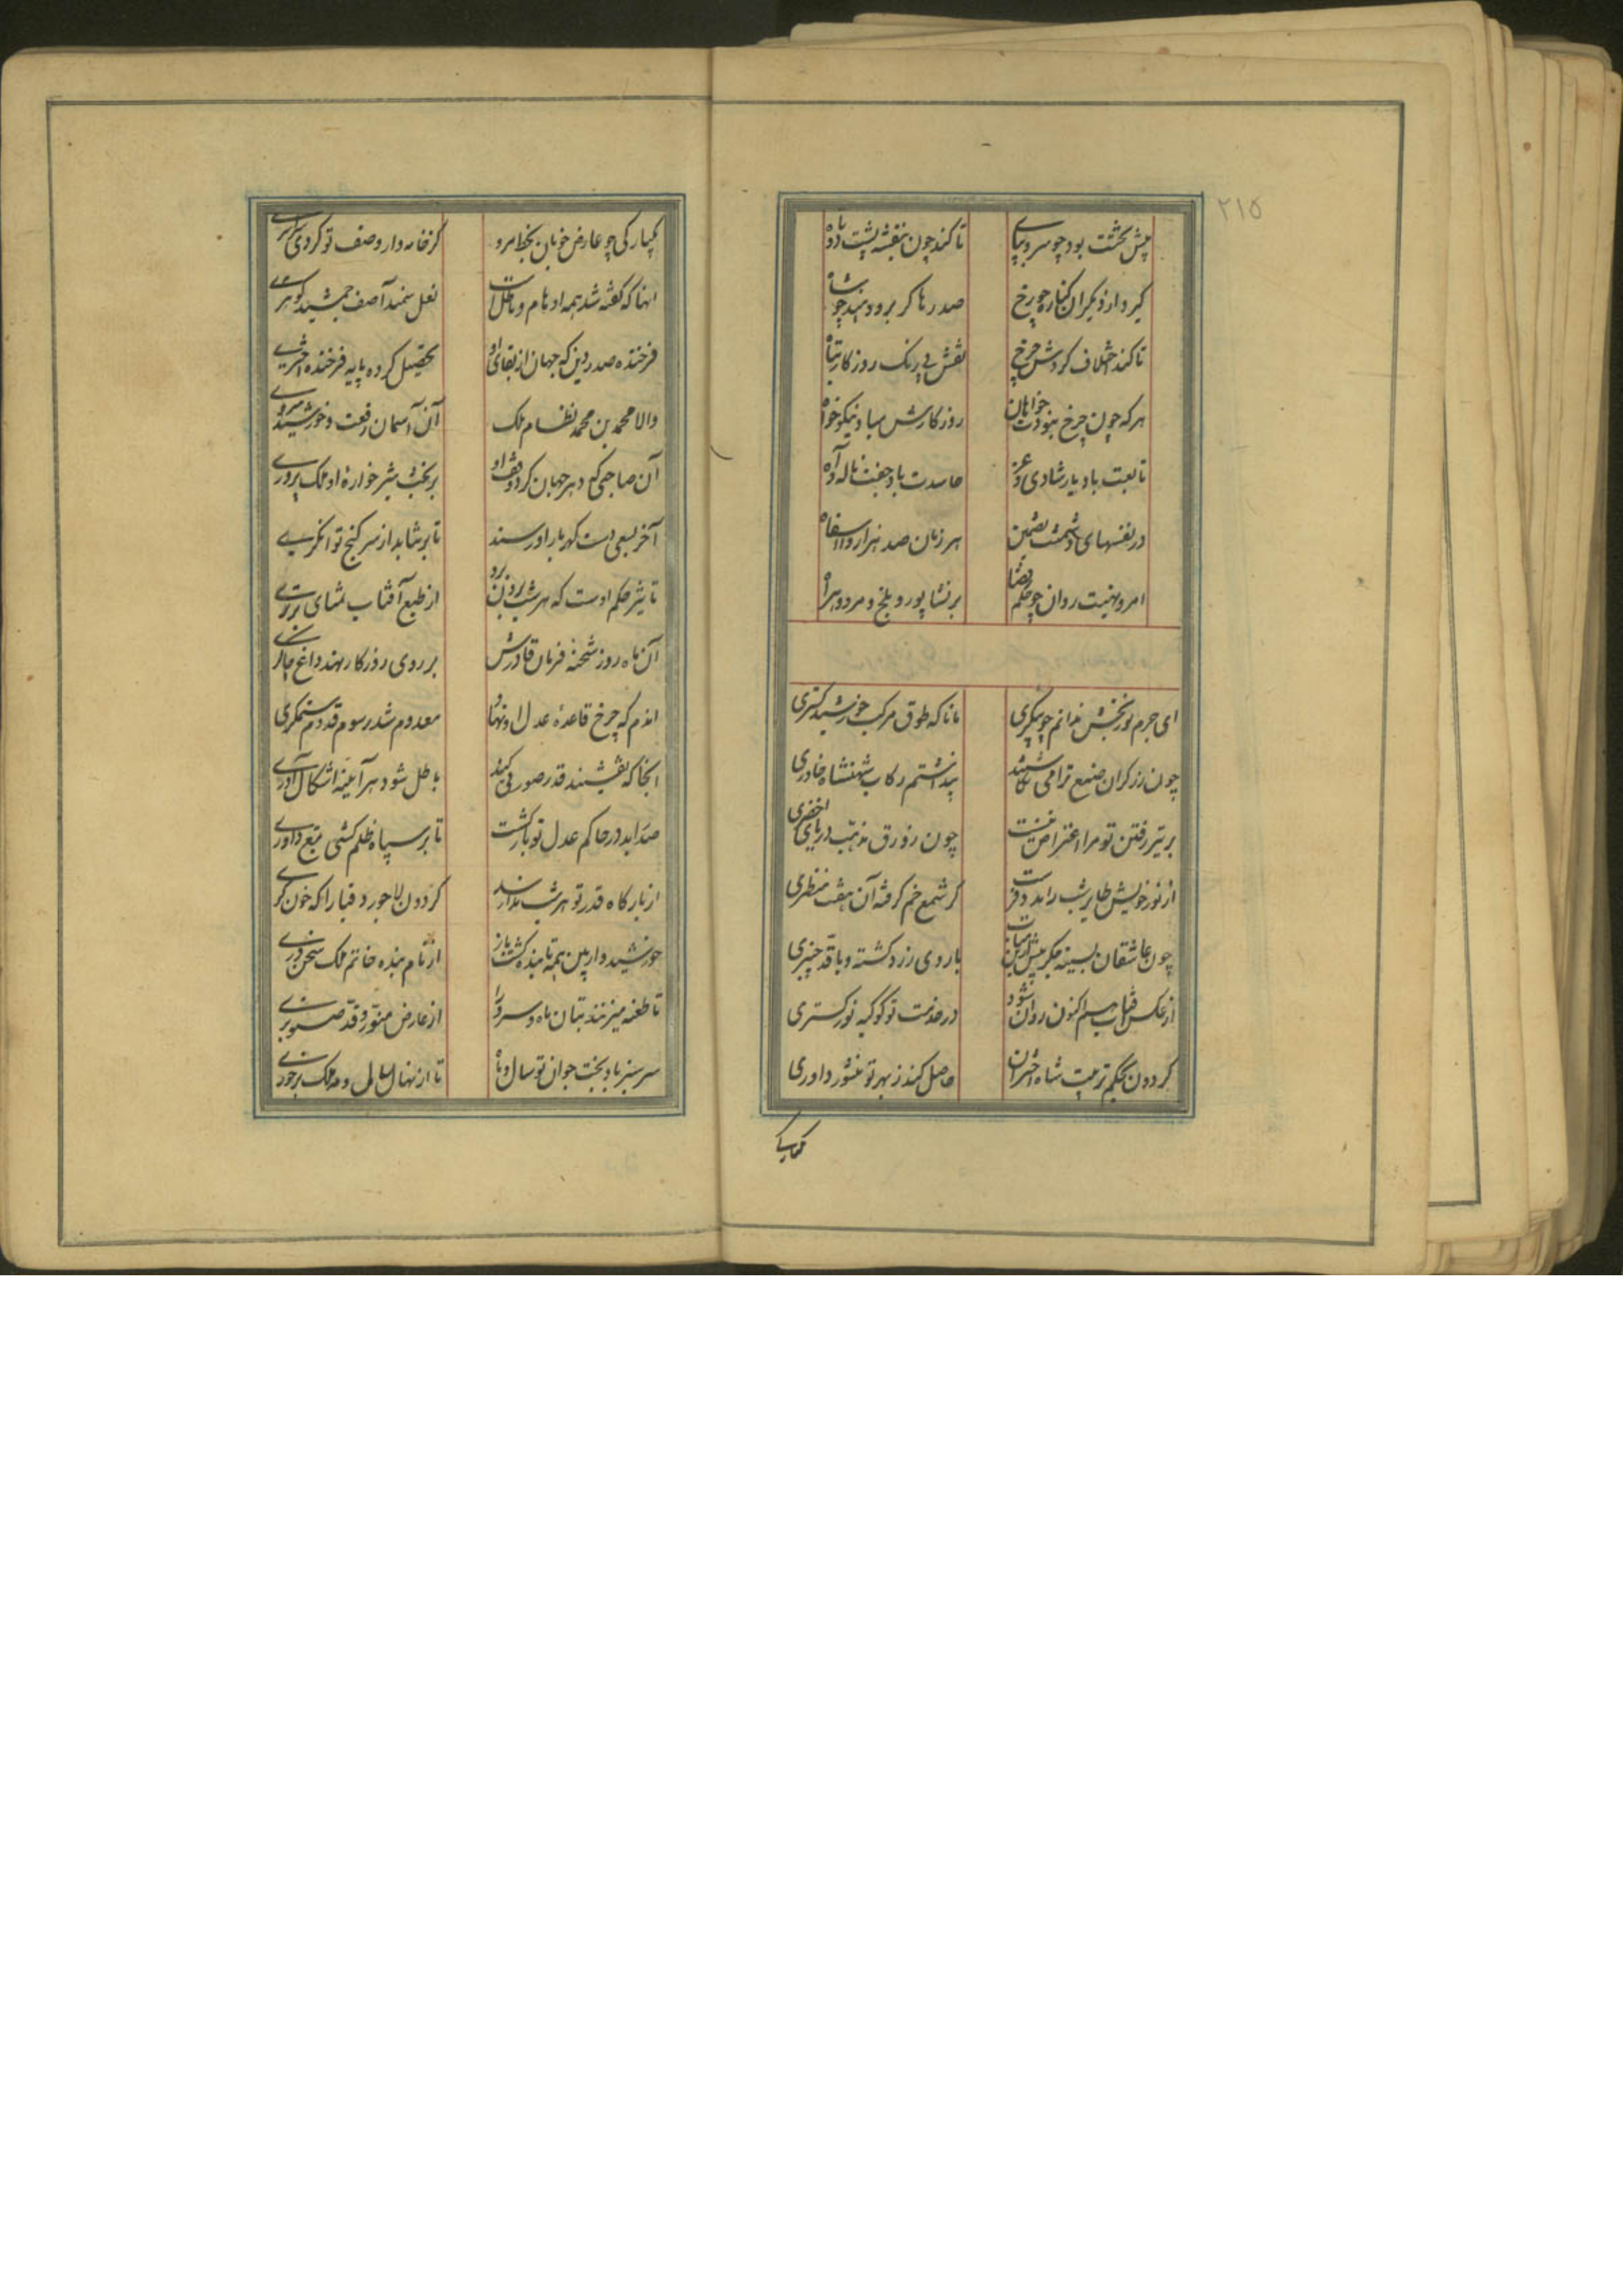 ۲۱۵
پیش تختت بود چو سرو بپای تا کند چون بنفشه پشت دو تاه
گیرد از دیگران کناره چو رخ صدر ها کر برو و بند چو شاه
تا کند اختلاف کردش چرخ نقش بی رنک روزکار تباه
هر که چون چرخ نبودت خواهان روزکارش مباد نیکو خواه
تابعت باد یار شادی و عز حاسدت باد جفت ناله و آه
در نفسهای دشمنت تضمین هر زمان صد هزار وا اسفاه
امر و نهیت روان چو حکم قضا بر نشاپور و بلخ و مرو و هراه
ای جرم نوربخش ندانم چو پیکری مانا که طوق مرکب خورشید کستری
چون زرکران صنع ترا می نکاشتند پنداشتم رکاب شهنشاه خاوری
بر تیز رفتن تو مرا اعتراض نیست چون زورق مذهب دریای اخضری
از نور خویش طایر شب را مدد فرست کر شمع خم کرفته آن هفت منظری
چون عاشقان بسینه مکر بیش ازین میات با روی زرد کشته و با قد چنبری
از عکس قباب سم اکنون روان شود در خدمت تو کوکبه نور کستری
کردون بحکم تربیت شاه اختران حاصل کند ز بهر تو منشور داوری
یکبارکی چو عارض خوبان بخط مرو کز خامه دار وصف تو کردی
اینها که کفته شد همه اوهام و باطل است نعل سمند آصف جمشید کوهری
فرخنده صدر دین که جهان از بقای او تحصیل کرده پایه فرخنده اختری
والا محمد بن محمد نظام ملک آن آسمان رفعت و خورشید سروری
آن صاحبی که دهر جهان کرد وقف او بر بخت شیر خواره او ملک پروری
آخر بسعی دست کهربار او رسند تا بر شاید از سر کنج توانکری
تاثیر حکم اوست که هر شب برون برد از طبع آفتاب تمنای برتری
آن ماه روز شحنه فرمان قادرش بر روی روزکار نهد داغ چاکری
اندم که چرخ قاعده عدل او نهاد معدوم شد رسوم قدوم ستمکری
آنجا که نقشبند قدر صورتی کند باطل شود هر آینه اشکال آذری
صد در حاکم عدل تو بازکشت تا بر سپاه ظلم کشی تیغ داوری
از بارکاه قدر تو هر شب ندا رسد کردون لاجورد قبا را که خون کری
خورشید وار بین همه تابنده کشت باز از نام بنده خاتم ملک سخن وری
تا طعنه میزنند بتان ماه و سرو را از عارض منور و قد صنوبری
سر سبز باد بخت جوان تو سال و ماه تا از نهال و ملک برخوری